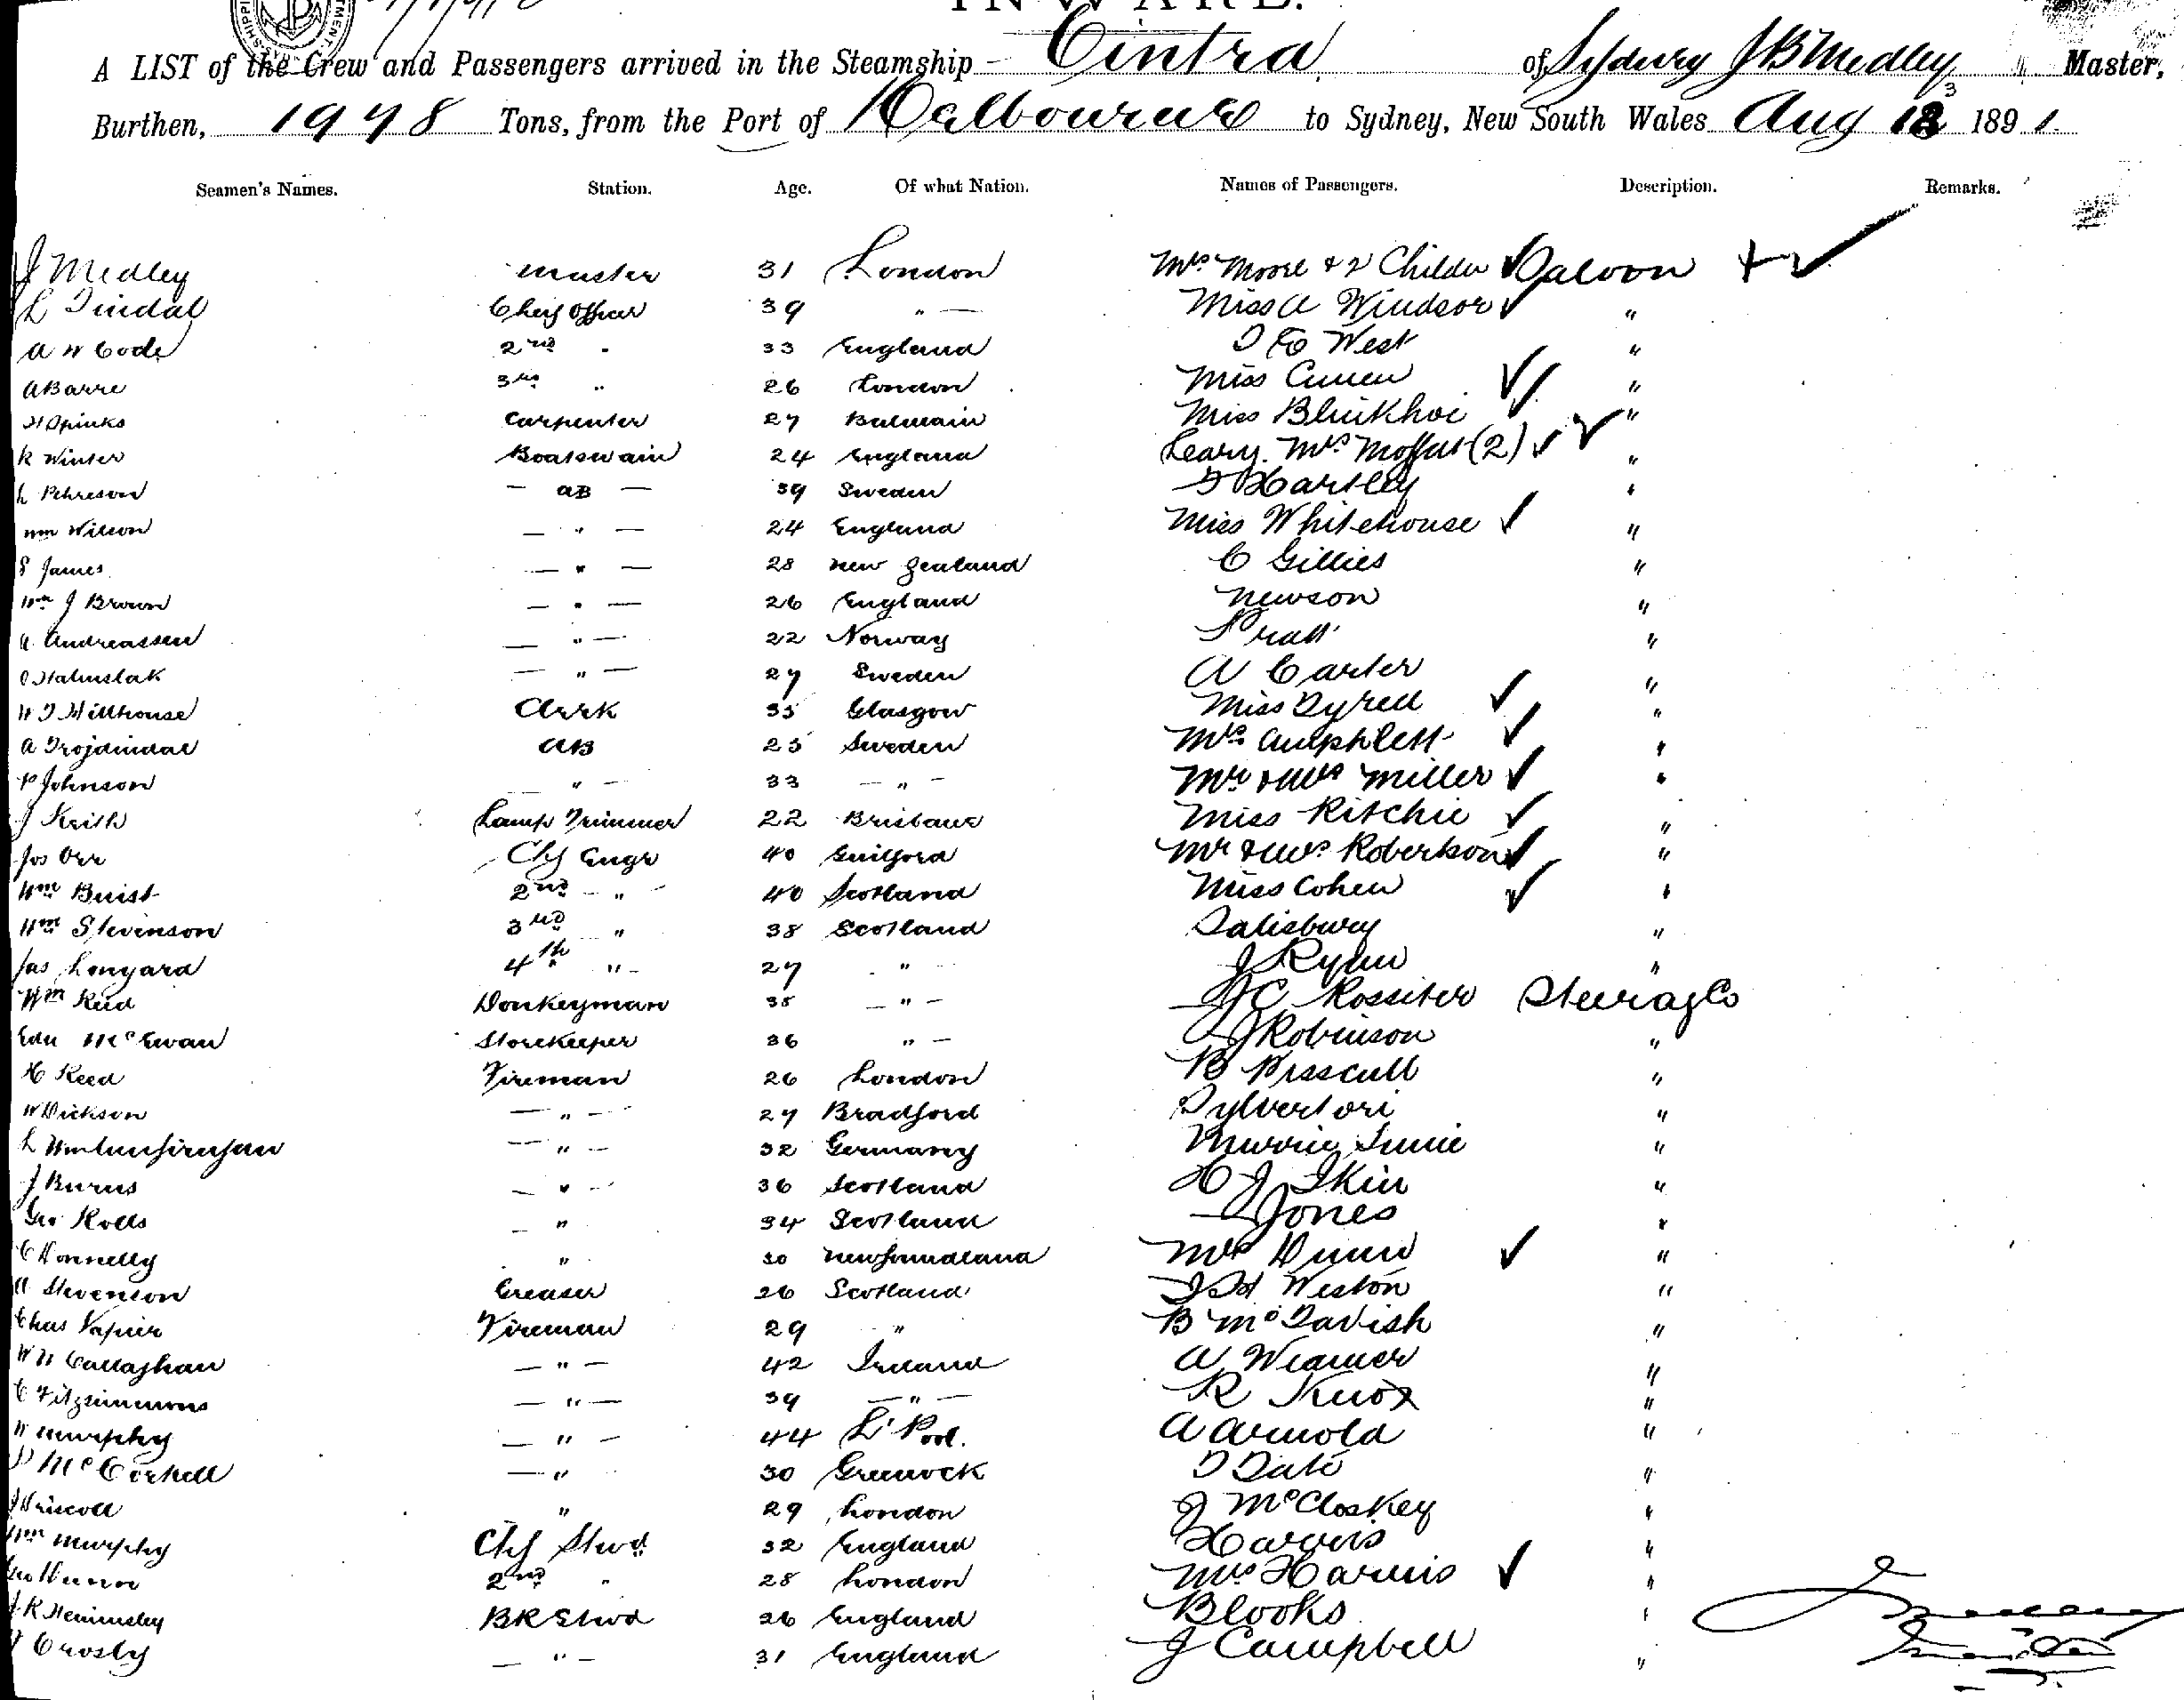 INWARD.
A LIST of the Crew and Passengers arrived in the Steamship Cintra of Sydney J B Medley Master,
Burthen, 1978 Tons, from the Port of Melbourne to Sydney, New South Wales Aug 13 1891.
Seamen's Names. Station. Age. Of what Nation. Names of Passengers. Description. Remarks.
J Medley Master 31 London Mrs Moore & 2 Childn Saloon
L Tindal Chief Officer 39 " Miss A Windsor "
A W Code 2nd " 33 England West "
A Barre 3rd " 26 London Miss Cullen "
H Spinks Carpenter 27 Balmain Miss "
R Winter Boatswain 24 England Leary. Mrs Moffat (2) "
L Pehreson AB 39 Sweden Hartley "
Wm Wilson " 24 England Miss Whitehouse "
S James " 28 New Zealand C Gillies "
Wm J Brown " 26 England Newson "
A Andreassen " 22 Norway Pratt "
27 Sweden A Carter "
W J Millhouse Clerk 35 Glasgow Miss "
A AB 25 Sweden Mrs Amphlett "
P Johnson " 33 " Mr & Mrs Miller "
J Keith Lamp Trimmer 22 Brisbane Miss Ritchie "
Jos Orr Chf Engr 40 Guilford Mr & Mrs Robertson "
Wm Buist 2nd " 40 Scotland Miss Cohen "
Wm Stevenson 3rd " 38 Scotland Salisbury "
Jas Lonyard 4th " 27 " J Ryan "
Wm Reid Donkeyman 38 " J C Rossiter Steerage
Edn McEwan Storekeeper 36 " J Robinson "
H Reed Fireman 26 London B "
W Dickson " 27 Bradford "
L " 32 Germany "
J Burns " 36 Scotland H J Ikin "
Geo Rolls " 34 Scotland J Jones "
C Donnelly " 30 Newfoundland Mrs Dunn "
A Stevenson Greaser 26 Scotland Weston "
Chas Napier Fireman 29 " B McTavish "
W H Callaghan " 42 Ireland A "
C Fitzsimmons " 39 " R Knox "
W Murphy " 44 L'Pool. A Arnold "
McCorkell " 30 Greenock "
J Driscoll " 29 London J McCloskey "
Wm Murphy Chf Stwd 32 England Harris "
Geo 2nd " 28 London Mrs Harris "
J R Hemmsley BR Stwd 26 England Blooks "
Crosby " 31 England J Campbell "